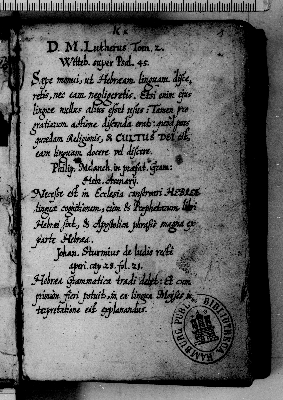 K.
D. M. Lutherus Tom. 2.
Witteb. super Psal. 45.
Sæpe monui, ut Hebræam linguam disce,
retis, nec eam negligeretis. Etsi enim ejus
linguæ nullus alius esset usus: Tamen pro
gratiarum actione discenda erit: quia pars
quædam Religionis, & CULTUS DEI est,
eam linguam docere vel discere.
Philip. Melanch. in præfat. Gram:
Hebr. Avenarij.
Necesse est in Ecclesia conservari HEBRÆÆ
linguæ cognitionem, cum & Prophetarum libri
Hebræi sint, & Apostolica phrasis magna ex
parte Hebræa.
Johan. Sturmius de ludis rectè
aperi. cap. 28. fol. 21.
Hebræa Grammatica tradi debet: Et cum
primum fieri potuit, in ea lingua Moises in-
terpretatione est explanandus.
HAMBURG. PUBL. BIBLIOTHEK